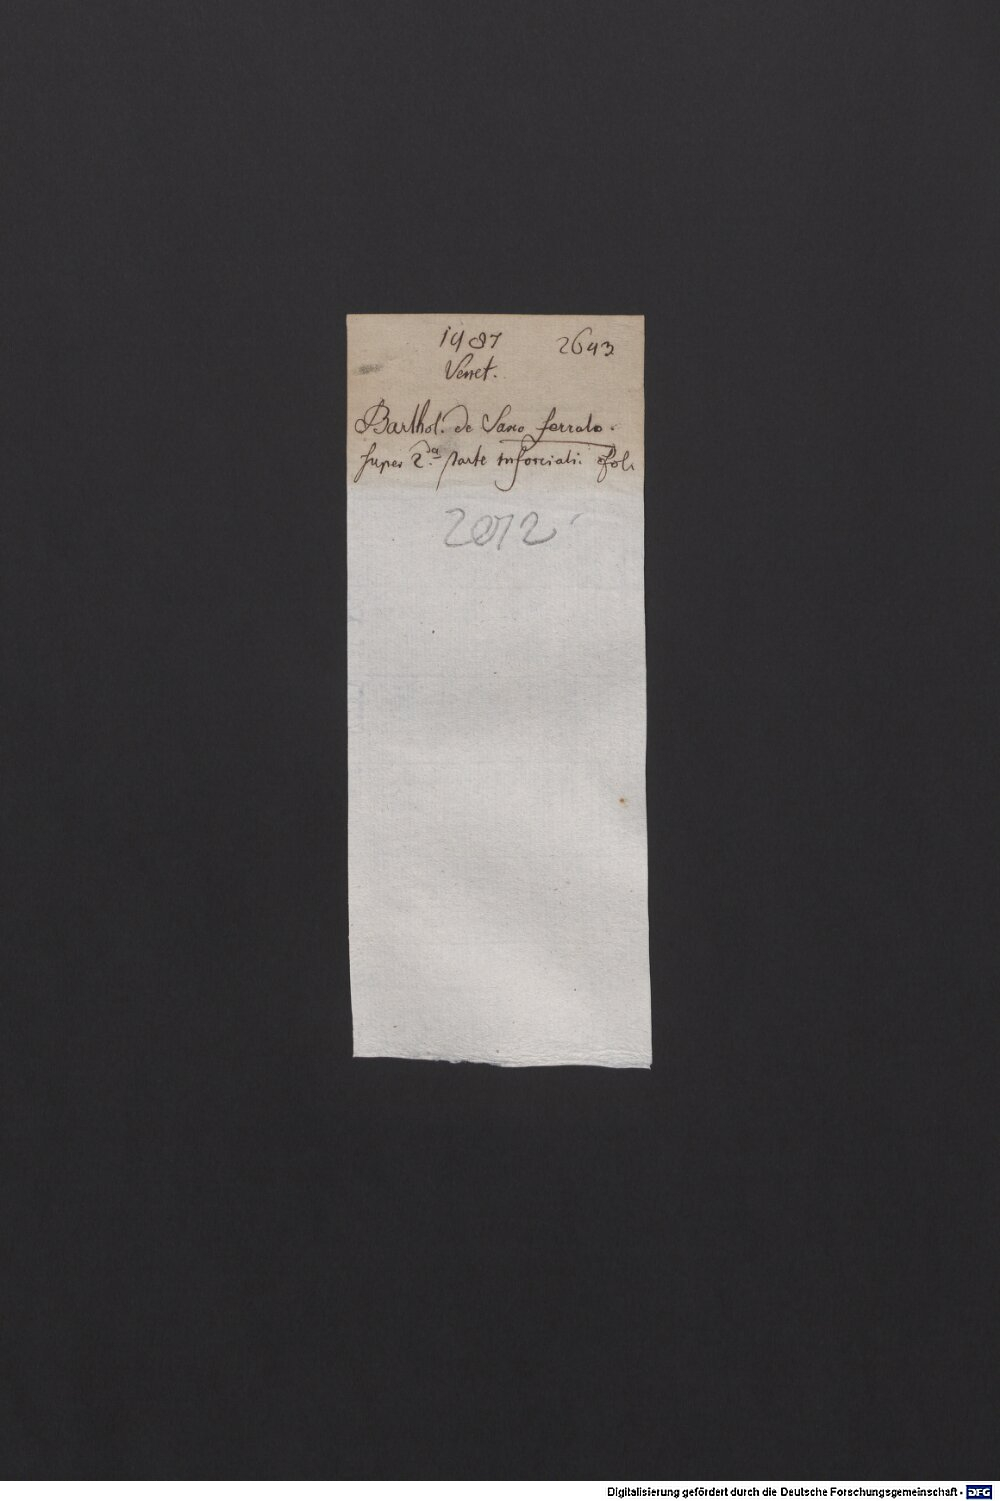 1487 2643
Venet.
Barthol. de Saxo ferrato.
super 2.da parte infortiati. fol.
2072
Digitalisierung gefördert durch die Deutsche Forschungsgemeinschaft - DFG